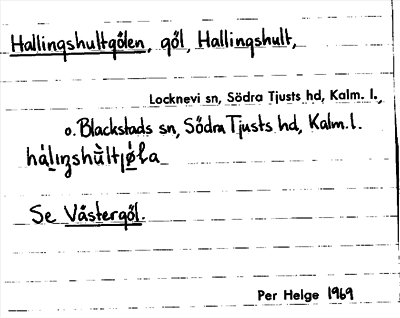 Hallingshultgölen, göl, Hallingshult,
Locknevi sn, Södra Tjusts hd, Kalm. l.,
o. Blackstads sn, Södra Tjusts hd, Kalm. l.
Se Västergöl.
Per Helge 1969